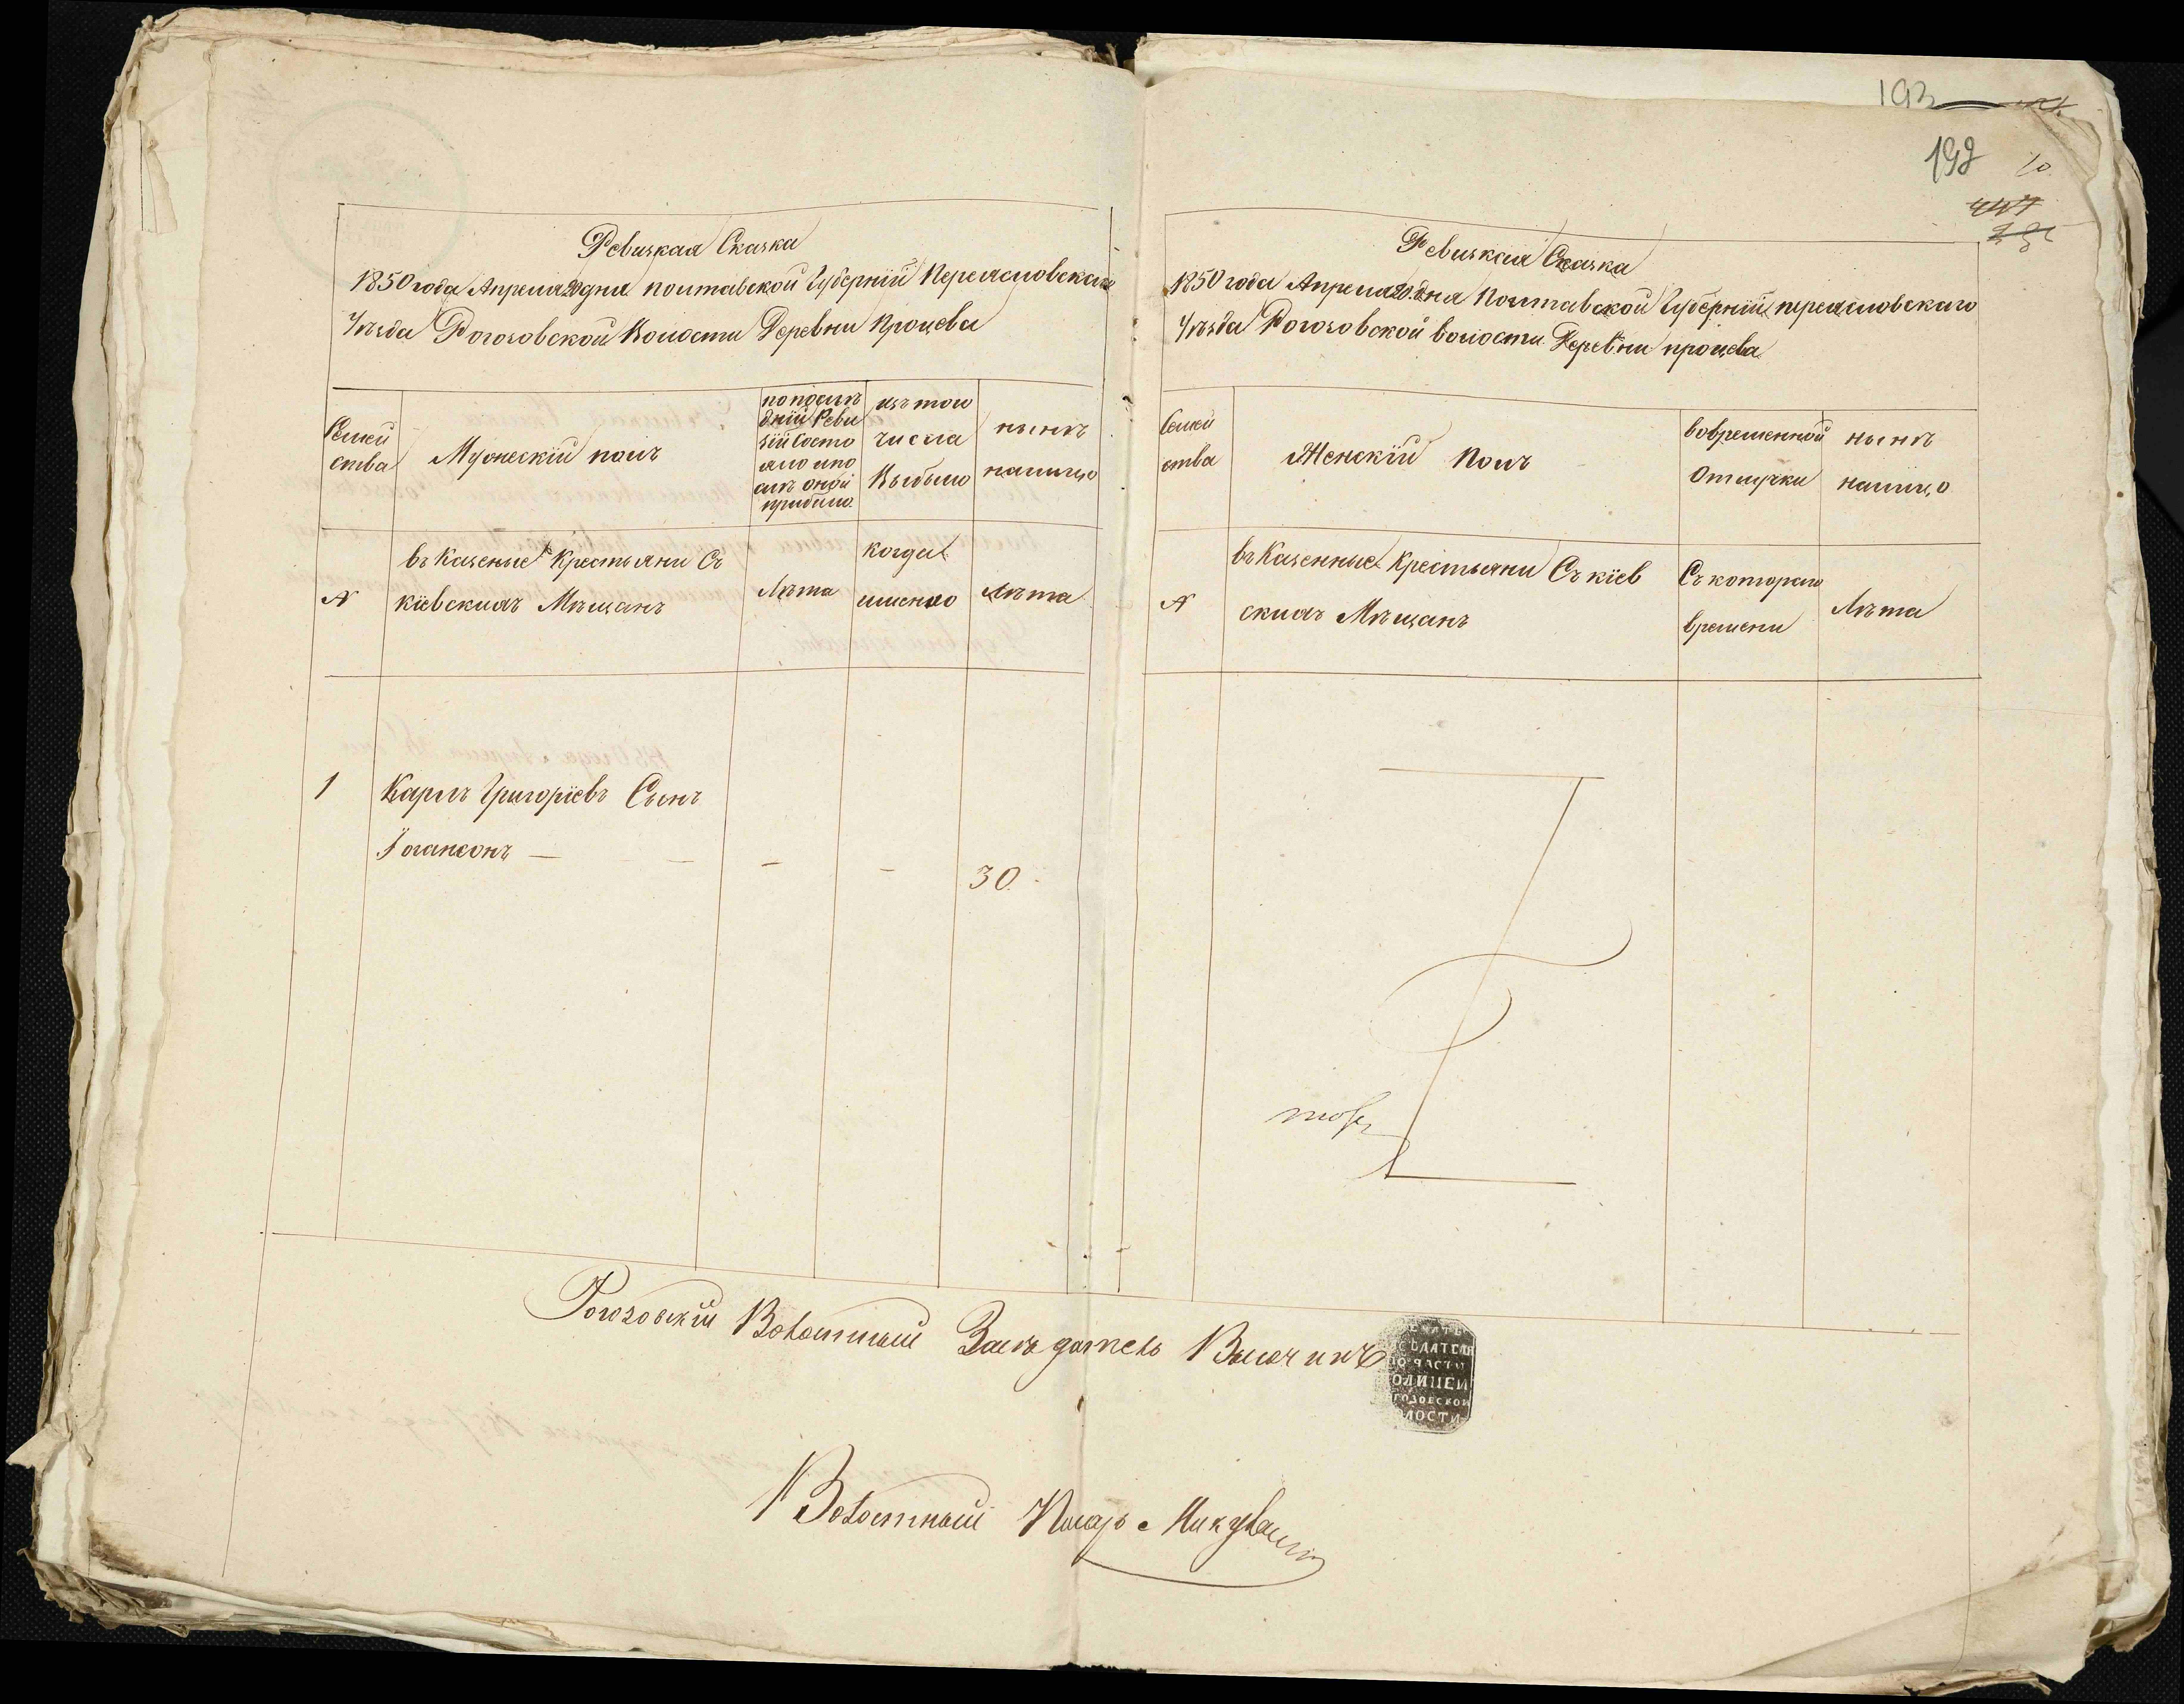 193
192
10
Ревизкая Сказка
1850 года Апреля 20 дня полтавской Губернїи Переясловскаго
Уѣзда Рогозовской Волости Деревни Процева
Семей
ства
Мужескїй полъ
по послѣ
дней Реви
зїи состо
яло и по
слѣ оной
прибыло
изъ того
числа
Выбыло
нынѣ
налицо
№
въ Казеные Крестьяни Съ
кїевскихъ Мѣщанъ
Лѣта
когда
именно
Лѣта
1
Карлъ Григорїевъ Сынъ
Іогансонъ — — - - 30
Ревизкая Сказка
1850 года Апреля 20 дня Полтавской Губернїи переясловскаго
Уѣзда Рогозовской волости Деревни процева
Семей
ства
Женскїй Полъ
вовременной
Отлучки
нынѣ
налицо
№
въ Казенные Крестьяни Съ кїев
скихъ Мѣщанъ
Съ котораго
времени
Лѣта
Рогозовскїй Волостный Засѣдатель
СѢДАТЕЛЯ
ПО ЧАСТИ
ОЛИЦЕИ
ГОЗОВСКОЙ
ЛОСТИ
Волостный Писарь